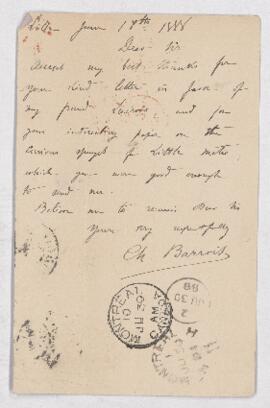 Lille June 18th 1888
Dear Sir
Accept my best thanks for
your kind letter in favor of
my friend Lacroix and for
your interesting paper on the
curious sponges of Little Metis
which you were good enough
to send me.
Believe me to remain Dear Sir
Yours very respectfully
Ch Barrois
MONTREAL
10 AM
2
JU 30
88
MONTREAL